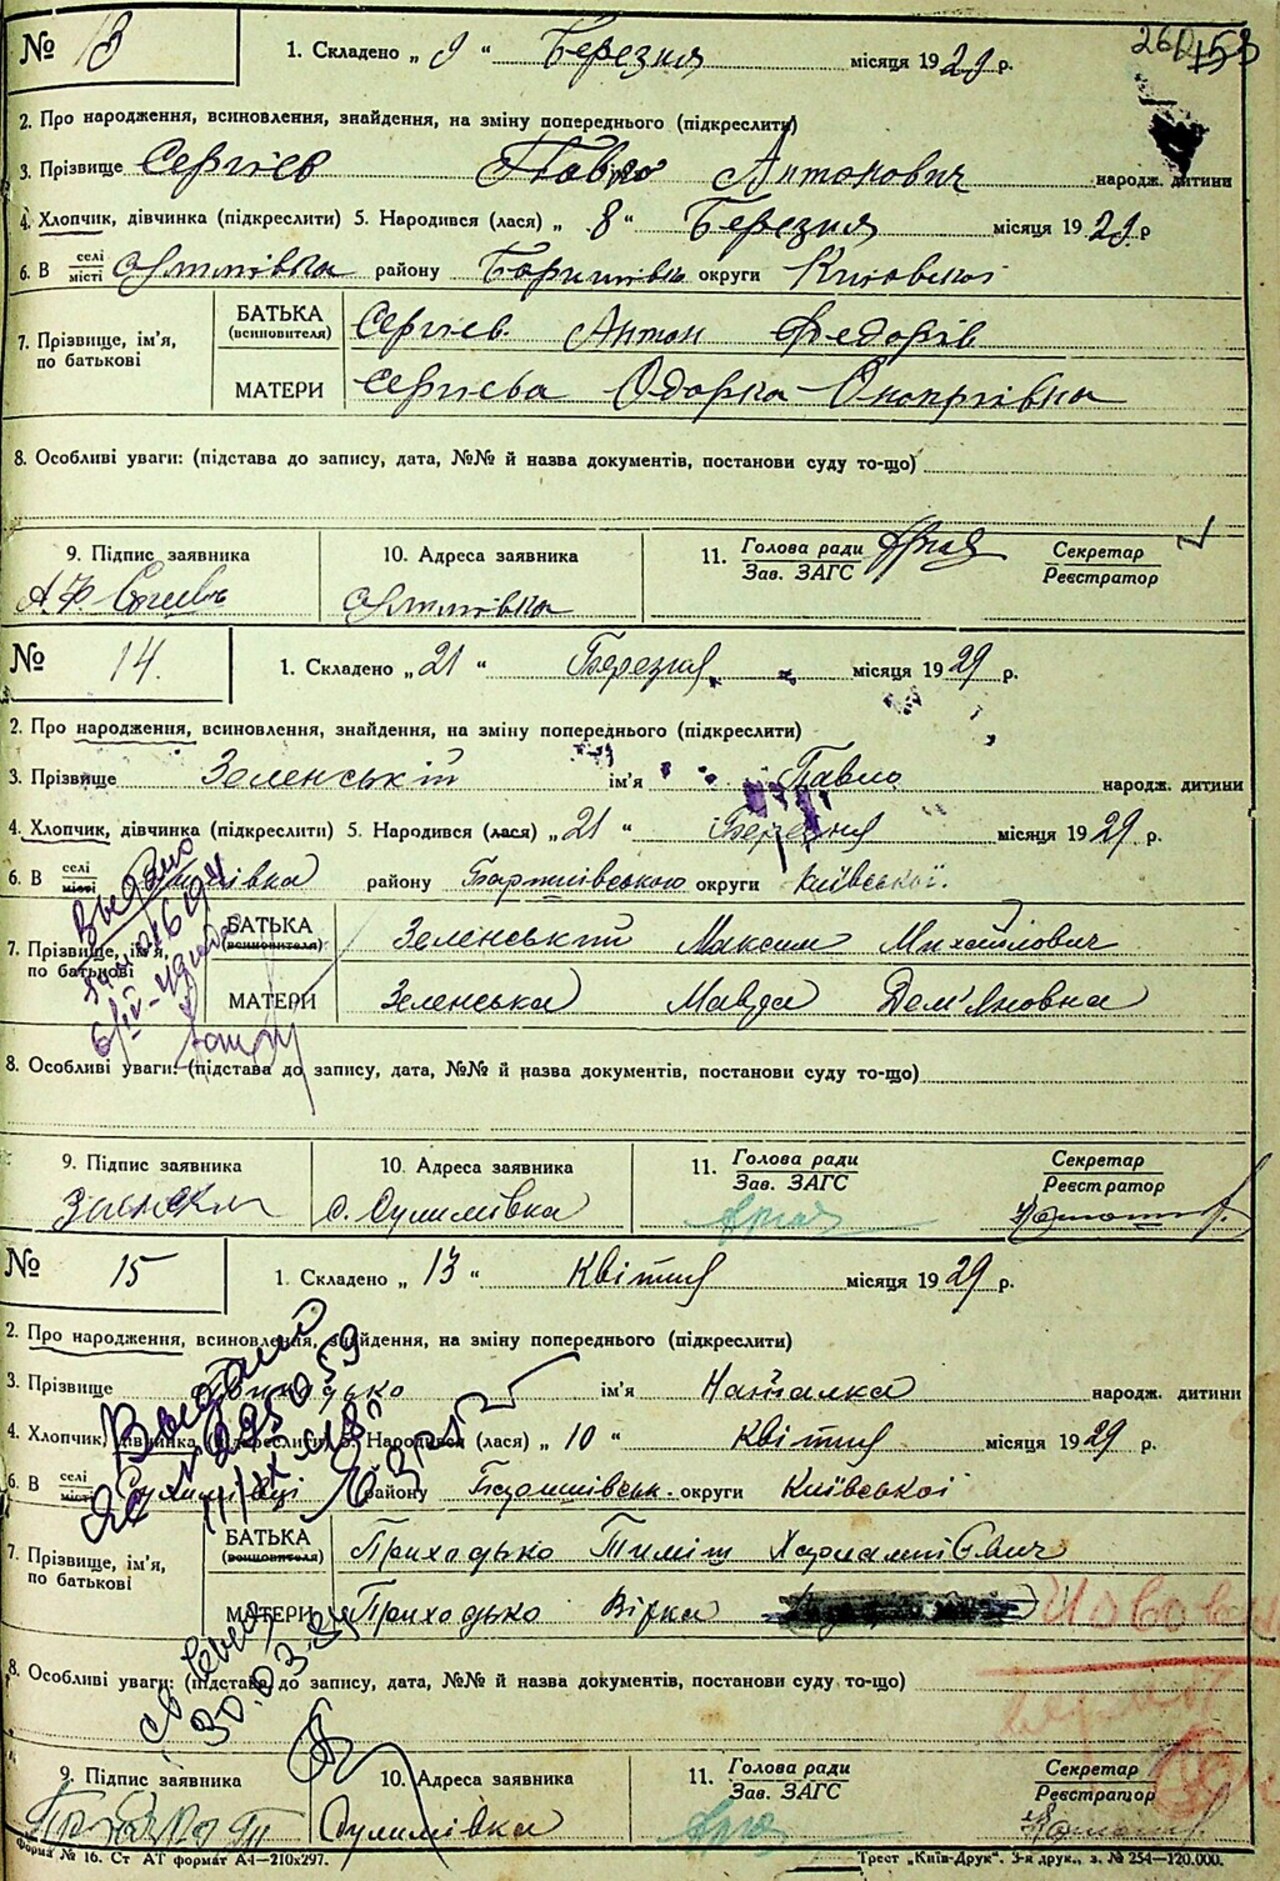 № 13 1. Складено „ 9 “ Березня місяця 1929 р.
2. Про народження, всиновлення, знайдення, на зміну попереднього (підкреслити)
3. Прізвище Сергієв Павло Антонович народж. дитини
4. Хлопчик, дівчинка (підкреслити) 5. Народився (лася) „ 8 “ Березня місяця 1929 р
6. В селі місті району округи
7. Прізвище, ім'я, по батькові
БАТЬКА (всиновителя) Сергієв Антон Федорів
МАТЕРИ Сергієва Одарка
8. Особливі уваги: (підстава до запису, дата, №№ й назва документів, постанови суду то-що)
9. Підпис заявника 10. Адреса заявника 11. Голова ради Зав. ЗАГС Секретар Реєстратор
А. Ф.
№ 14. 1. Складено „ 21 “ Березня місяця 1929 р.
2. Про народження, всиновлення, знайдення, на зміну попереднього (підкреслити)
3. Прізвище Зеленській ім'я Павло народж. дитини
4. Хлопчик, дівчинка (підкреслити) 5. Народився (лася) „ 21 “ Березня місяця 1929 р.
6. В селі місті району Баришівського округи Київської.
7. Прізвище, ім'я, по батькові
БАТЬКА (всиновителя) Зеленський Максим Михайлович
МАТЕРИ Зеленська Мавра Дем'яновна
8. Особливі уваги: (підстава до запису, дата, №№ й назва документів, постанови суду то-що)
9. Підпис заявника 10. Адреса заявника 11. Голова ради Зав. ЗАГС Секретар Реєстратор
с. Сулимівка
№ 15 1. Складено „ 13 “ Квітня місяця 1929 р.
2. Про народження, всиновлення, знайдення, на зміну попереднього (підкреслити)
3. Прізвище Приходько ім'я Наталка народж. дитини
4. Хлопчик, дівчинка (підкреслити) 5. Народився (лася) „ 10 “ Квітня місяця 1929 р.
6. В селі місті Сулимівці району Баришівськ. округи Київської
7. Прізвище, ім'я, по батькові
БАТЬКА (всиновителя) Приходько Тиміш Харлампієвич
МАТЕРИ Приходько Вірка
8. Особливі уваги: (підстава до запису, дата, №№ й назва документів, постанови суду то-що)
30.03.
9. Підпис заявника 10. Адреса заявника 11. Голова ради Зав. ЗАГС Секретар Реєстратор
Сулимівка
Форма № 16. Ст АТ формат А4—210x297. Трест „Київ-Друк“. 3-я друк., з. № 254—120.000.